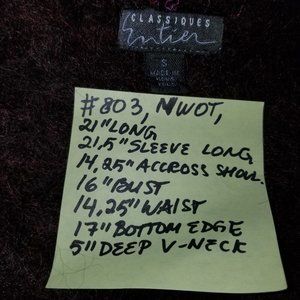 CLASSIQUES
Entier
S
MADE IN
#803, NWOT,
21" LONG
21,5" SLEEVE LONG,
14,25" ACCROSS SHOUL.
16" BUST
14,25" WAIST
17" BOTTOM EDGE
5" DEEP V-NECK